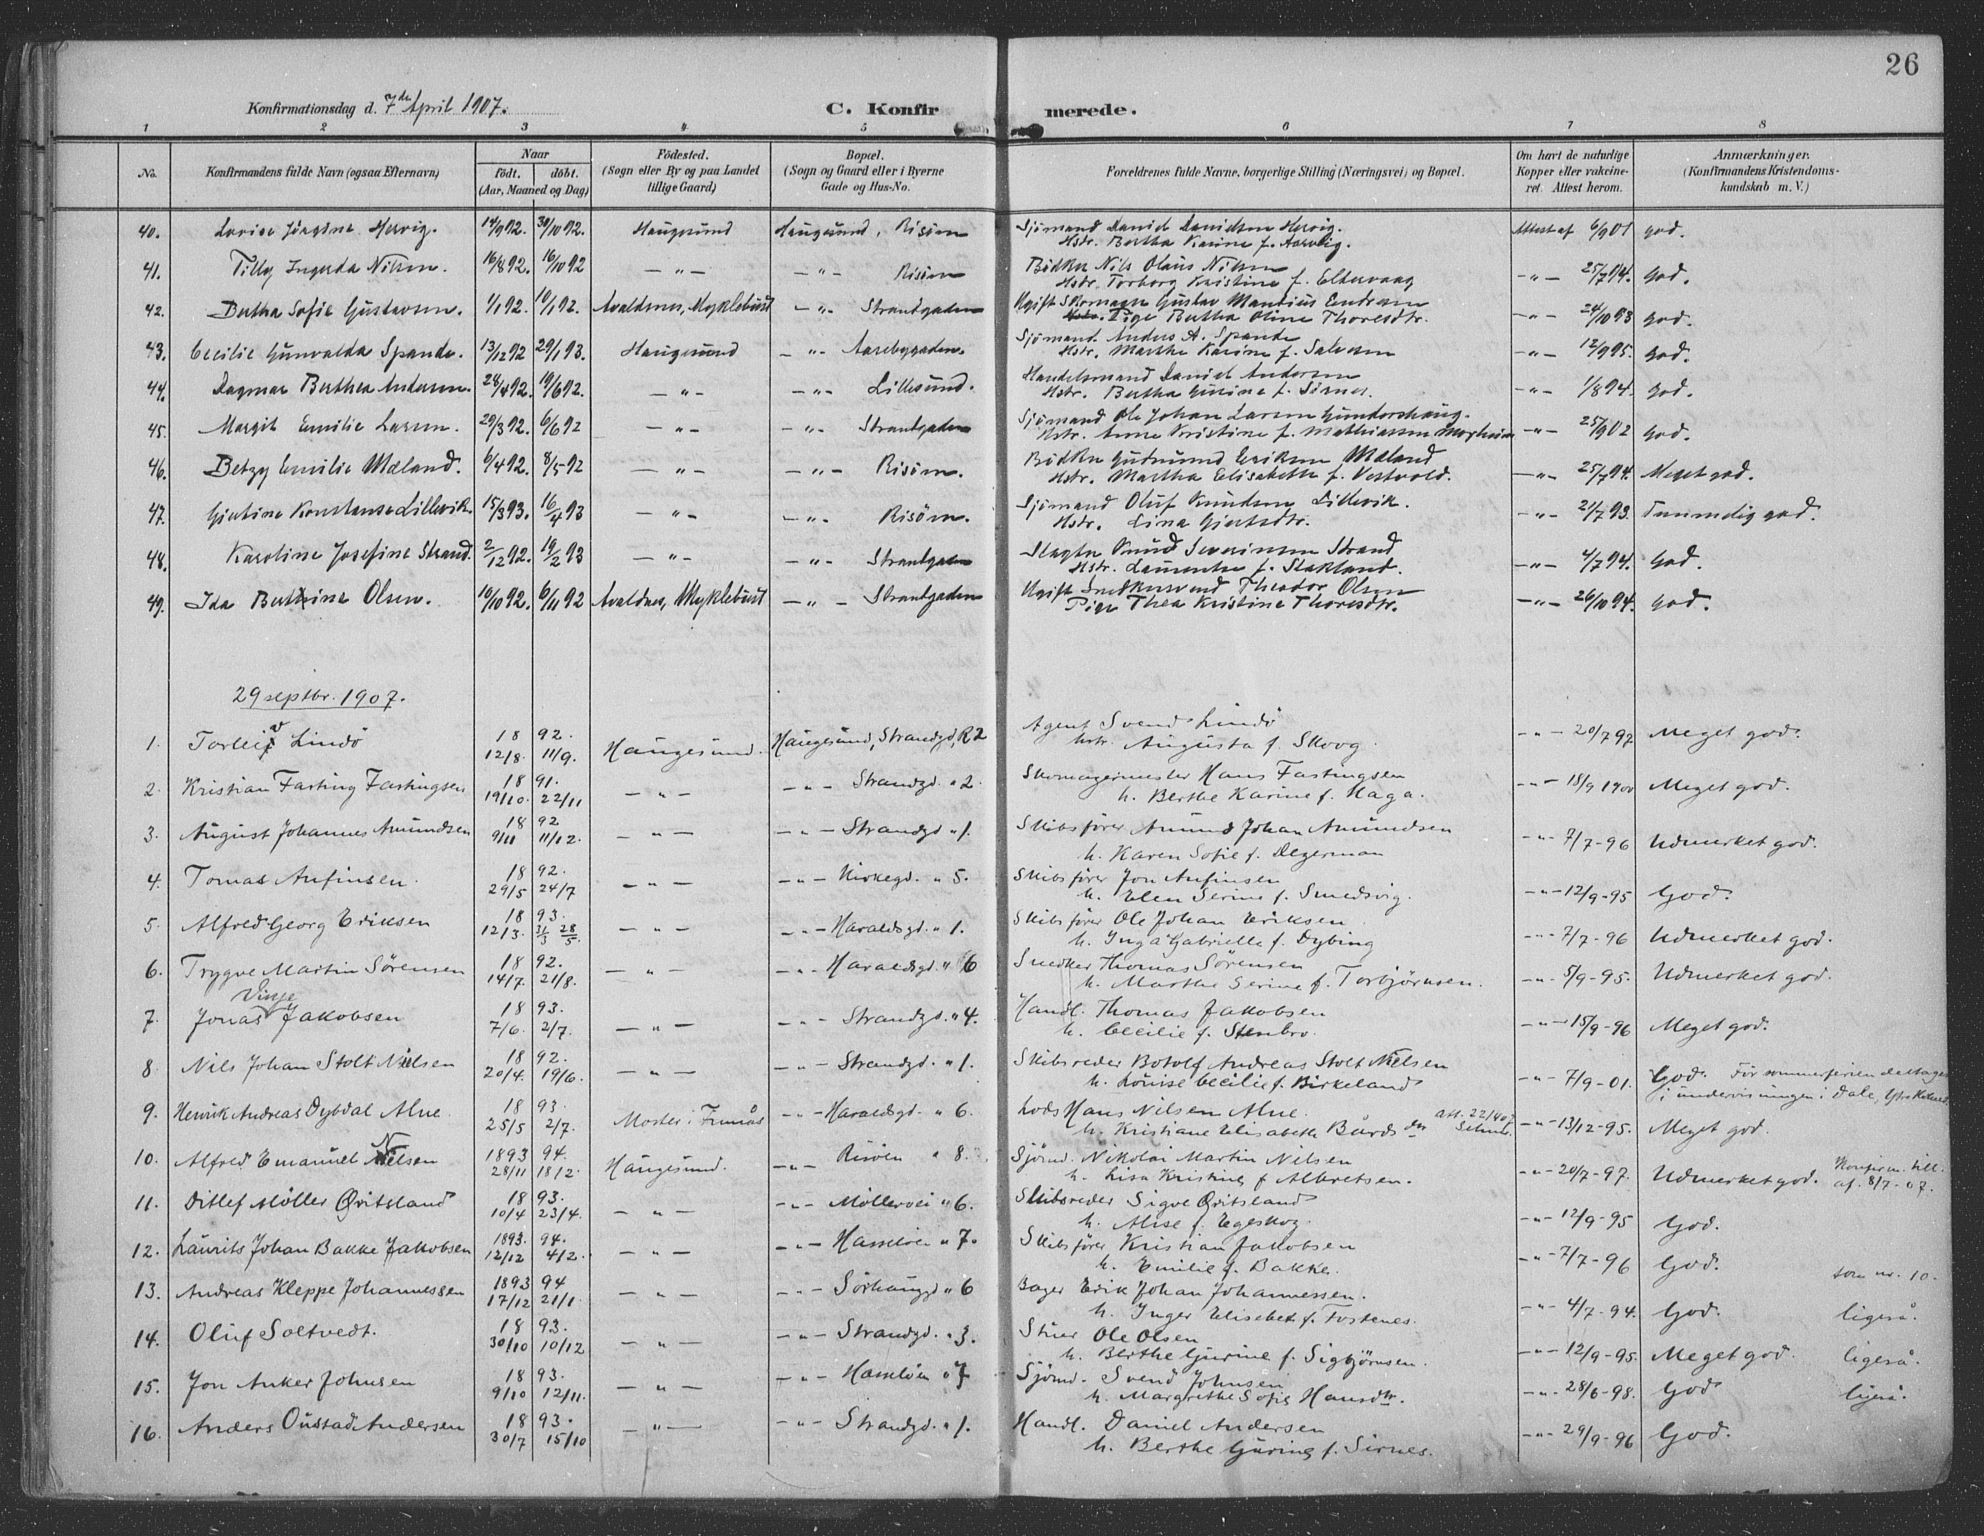 26
Konfirmationsdag d. 7de April 1907. C. Konfirmerede.
1 2 3 4 5 6 7 8
No. Konfirmandens fulde Navn (ogsaa Efternavn) Naar født. døbt. (Aar, Maaned og Dag) Fødested. (Sogn eller By og paa Landet tillige Gaard) Bopæl. (Sogn og Gaard eller i Byerne Gade og Hus-No. Forældrenes fulde Navne, borgerlige Stilling (Næringsvei) og Bopæl. Om havt de naturlige Kopper eller vaccineret. Attest herom. Anmærkninger. (Konfirmandens Kristendomskundskab m. V.)
40. Lovise Jørgine Hervig. 14/9 92. 30/10 92. Haugesund Haugesund, Risøen Sjømand Daniel Danielsen Hervig. Hstr. Bertha Karine f. Aarvig. Attest af 6/9 01 god.
41. Tilly Ingerda Nilsen. 16/8 92. 16/10 92 — " — — " — Risøen Bødker Nils Olaus Nilsen Hstr. Torborg Kristine f. Eltervaag — " — 25/7 94. God.
42. Bertha Sofie Gustavsen. 1/1 92. 10/1 92. Avaldsnes, Myklebust — " — Strandgaden Ugift Skomager Gustav Mauritius Endresen Pige Bertha Oline Thoresdtr. — " — 24/10 93 god.
43. Cecilie Gunvalda Spande. 13/12 92 29/1 93. Haugesund — " — Aasebygaden. Sjømand Anders A. Spande Hstr. Marthe Karine f. Salvesen — " — 12/9 95. god.
44. Dagmar Berthea Andersen. 28/4 92. 19/6 92. — " — — " — Lillesund. Handelsmand Daniel Andersen Hstr. Bertha Gurine f. Sirnes. — " — 1/8 94. god.
45. Margit Emilie Larsen. 29/3 92. 6/6 92 — " — — " — Strandgaden Sjømand Ole Johan Larsen Gundershaug. Hstr. Anne Kristine f. Mathiassen — " — 25/9 02 god.
46. Betzy Emilie Mæland. 6/4 92. 8/5 92 — " — — " — Risøen. Bødker Gudmund Eriksen Mæland Hstr. Martha Elisabeth f. Vestvold. — " — 25/7 94. Meget god.
47. Gjertine Konstanse Lillevik. 15/3 93. 16/4 93 — " — — " — Risøen. Sjømand Oluf Knudsen Lillevik. Hstr. Lina Gjertsdtr. — " — 21/7 93. Temmelig god.
48. Karoline Josefine Strand. 2/12 92. 19/2 93 — " — — " — Strandgaden Slagter Knud Severinsen Strand Hstr. Laurentse f. Stakland. — " — 4/7 94. God.
49. Ida Bertine Olsen. 16/10 92. 6/11 92 Avaldsnes, Myklebust — " — Strandgaden Ugift Snedkersvend Theodor Olsen Pige Thea Kristine Thoresdtr. — " — 26/10 94. god.
29 septbr. 1907.
1. Torleiv Lindø 18 92. 12/8. 11/9. Haugesund. Haugesund, Strandgd, R 2 Agent Svend Lindø hstr. Augusta f. Skoog. — " — 20/7 97 Meget god.
2. Kristian Farting Fartingsen 18 91. 19/10. 22/11 — " — — " — Strandgd. " 2. Skomagermester Hans Fastingsen h. Berthe Karine f. Haga. — " — 18/9 1900 Meget god.
3. August Johannes Amundsen 18 92 9/11 11/12. — " — — " — Strandgd " 1. Skibsfører Amund Johan Amundsen h. Karen Sofie f. Degerman — " — 7/7-96 Udmerket god.
4. Tomas Anfinsen. 18 92. 29/5 24/7 — " — — " — Kirkegd. " 5. Skibsfører Jon Anfinsen h. Elen Serine f. Smedsvig. — " — 12/9-95 God.
5. Alfred Georg Eriksen 18 93. 12/3. 28/5. — " — — " — Haraldsgd. " 1. Skibsfører Ole Johan Eriksen h. Inga Gabrielle f. Dybing — " — 7/7-96 Udmerket god.
6. Trygve Martin Sørensen 18 92. 14/7. 21/8. — " — — " — Haraldsgd. " 6 Snedker Thomas Sørensen h. Marthe Serine f. Torbjørnsen. — " — 5/9-95. Udmerket god.
7. Jonas Vinje Jakobsen 18 93. 7/6. 2/7. — " — — " — Strandgd. " 4. Handl. Thomas Jakobsen h. Cecilie f. Stenbro. — " — 15/9-96 Meget god.
8 Nils Johan Stolt Nielsen 18 92. 20/4. 19/6. — " — — " — Strandgd. " 1. Skibsreder Botolf Andreas Stolt Nielsen h. Louise Cecilie f. Birkeland — " — 7/9-01. God. Før sommerferien deltaget i undervisningen i Dale,
9. Henrik Andreas Dybdal Alne. 18 93. 25/5 2/7. Moster i Finnås — " — Haraldsgd. " 6. Lods Hans Nilsen Alne. h. Kristiane Elisabeth Bårdsdtr — " — 13/12-95. Meget god.
10. Alfred Emanuel Nilsen 1893 94. 28/11 18/2. Haugesund. — " — Risøen " 8. Sjømd. Nikolai Martin Nilsen h. Lisa Kristine f Albretsen. — " — 20/7-97. Udmerket god. Konfirm. till. af. 8/7-07.
11. Ditlef Møller Qvitsland 18 93. 10/4 23/4. — " — — " — Møllervei " 6. Skibsreder Sigve Qvitsland h. Alise f. Egeskog. — " — 12/9-95 God.
12. Laurits Johan Bakke Jakobsen 1893. 94. 12/12 4/2. — " — — " — Hasseløen " 7. Skibsfører Kristian Jakobsen h. Emilie f. Bakke. — " — 7/7-96 God.
13. Andreas Kleppe Johannessen 1893 94 17/12 21/1 — " — — " — Sørhauggd " 6 Bager Erik Johan Johannessen. h. Inger Elisebet f. Fostenes. — " — 4/7-94. God. som nr. 10. ligeså.
14. Oluf Soltvedt. 18 93. 30/10 10/12 — " — — " — Strandgd. " 3. Stuer Ole Olsen h. Berthe Gurine f. Sigbjørnsen. — " — 12/9-95. Meget god. ligeså.
15. Jon Anker Johnsen 18 93. 9/10 12/11. — " — — " — Hasseløen " 7 Sjømd. Svend Johnsen h. Margrethe Sofie Hansdtr. — " — 28/6-98. God ligeså.
16. Anders Oustad Andersen 18 93. 30/7 15/10 — " — — " — Strandgd. " 1. Handl. Daniel Andersen h. Berthe Gurine f. Sirnes. — " — 29/9-96 God.